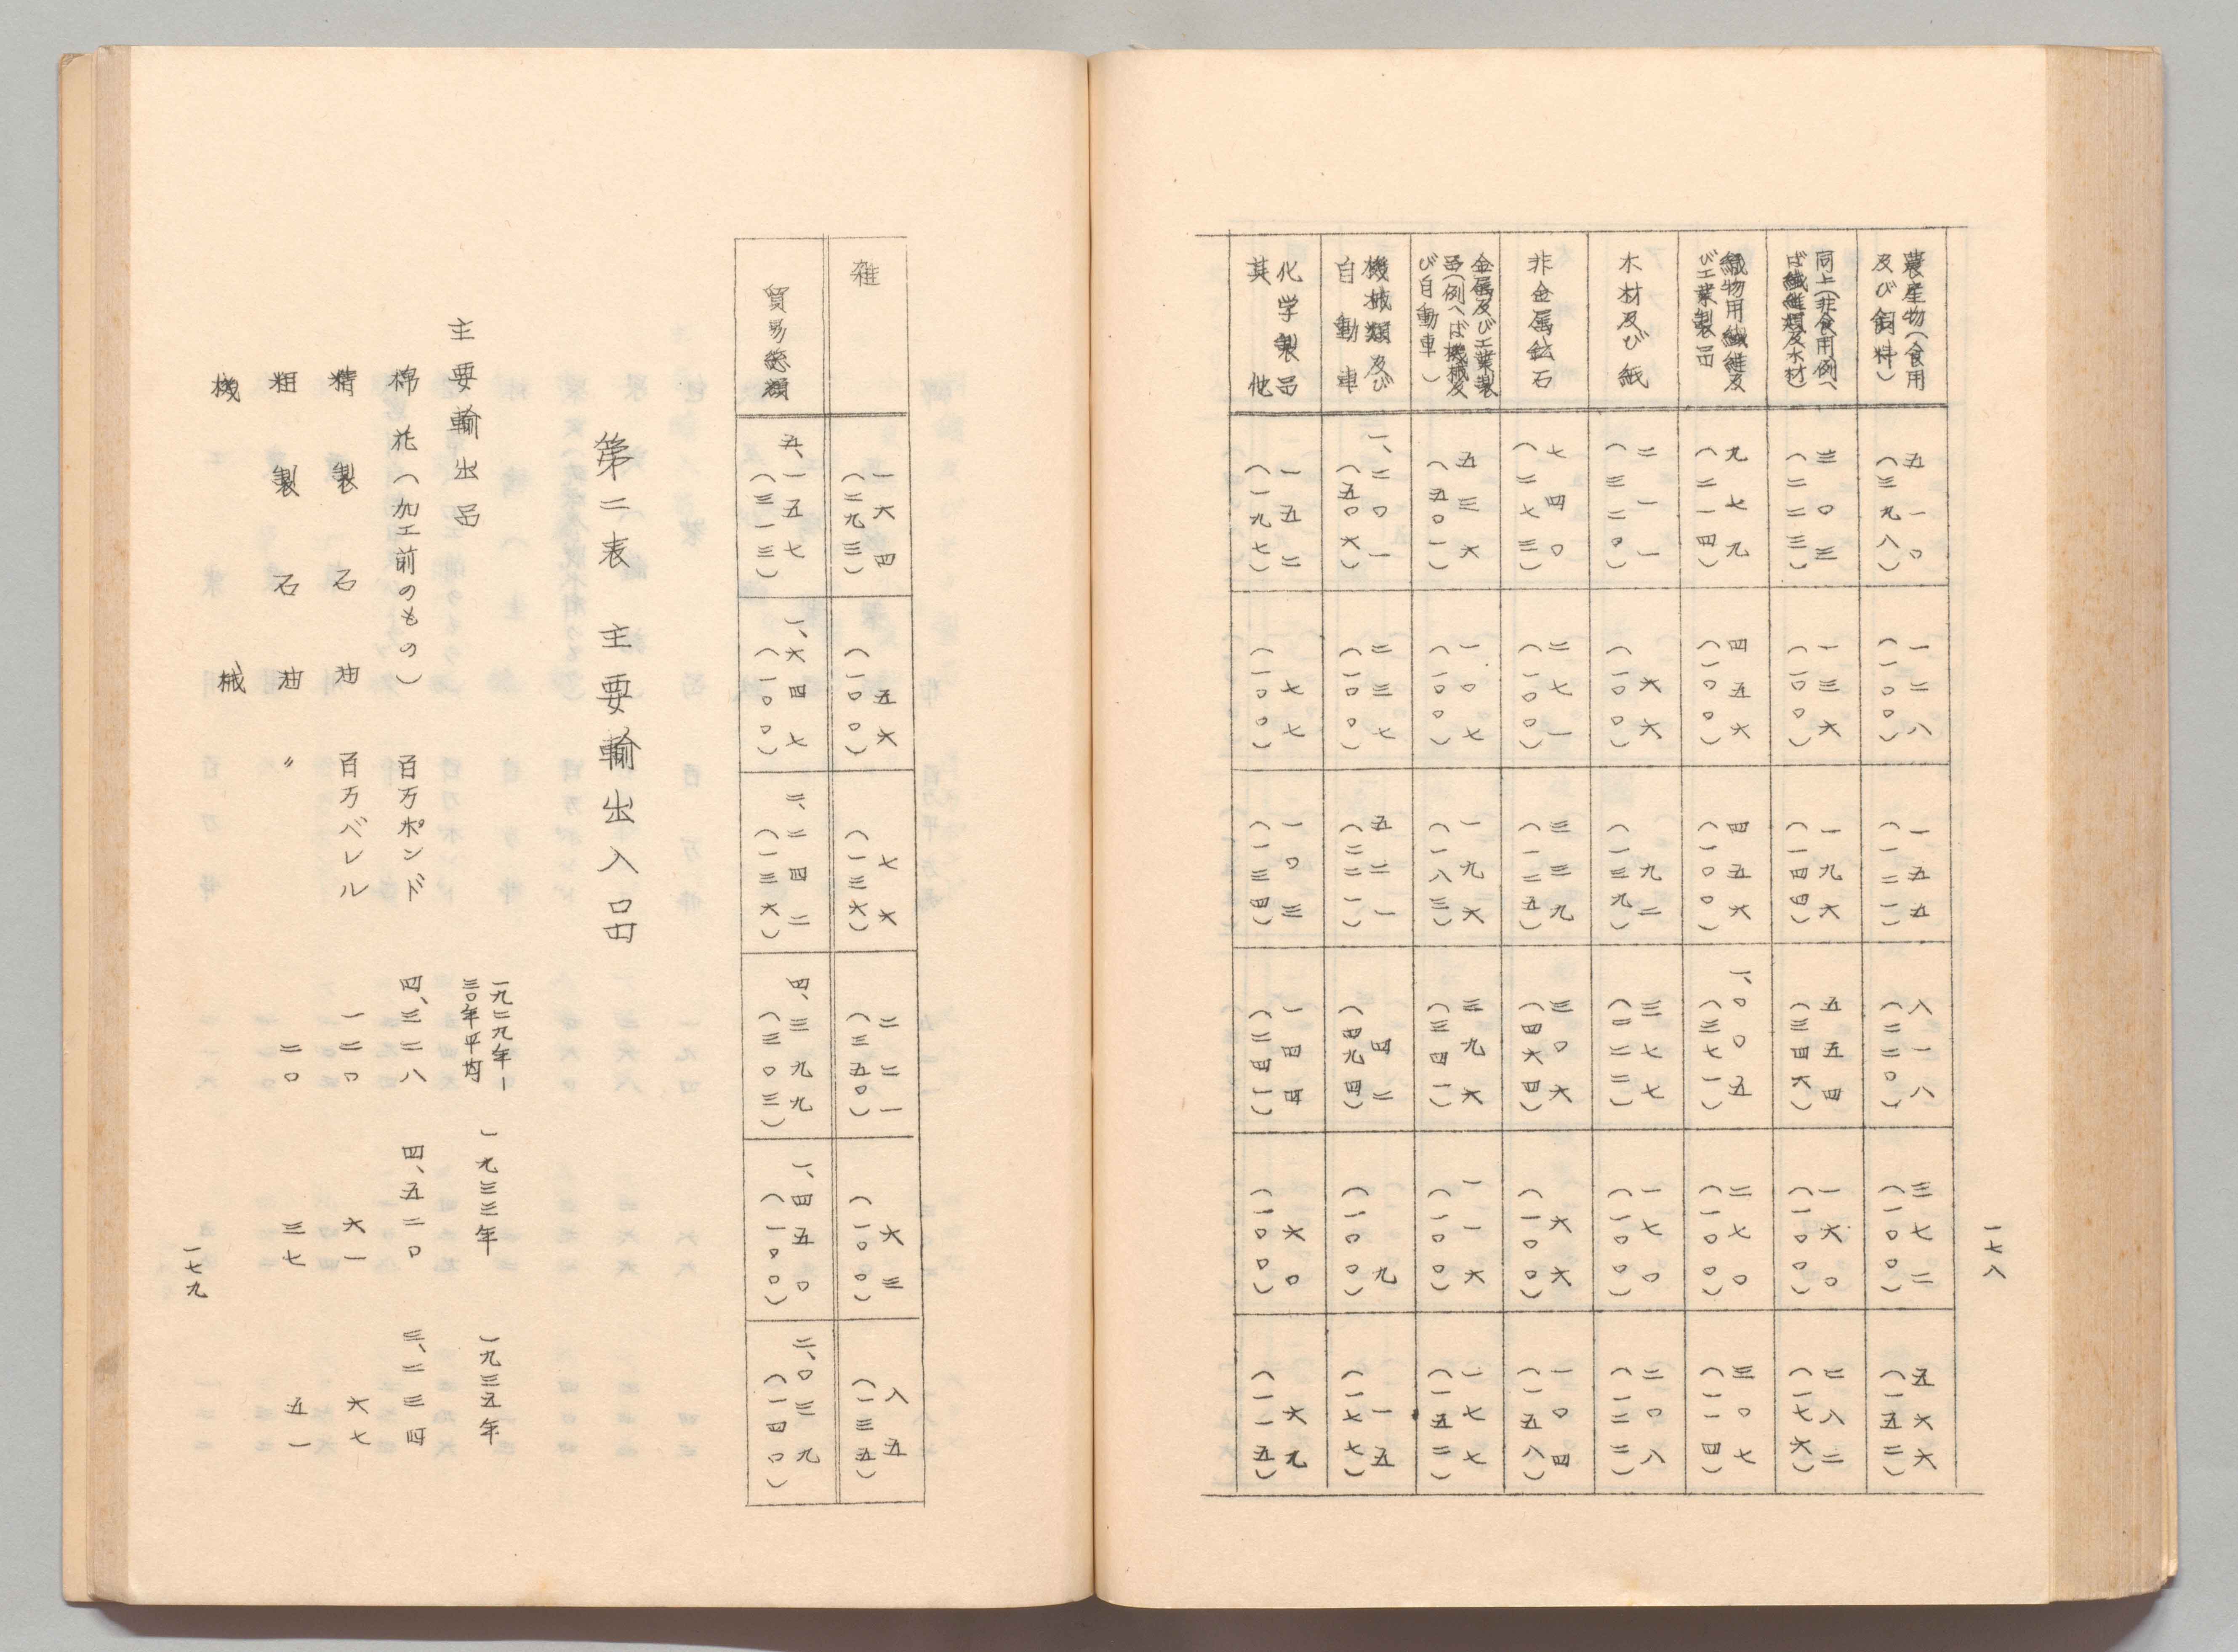 一七八
農産物(食用 五一〇 一二八 一五五 八一八 三七二 五六六
及び飼料) (三九八) (一〇〇) (一二一) (二二〇) (一〇〇) (一五二)
同上(非食用例へ 三〇三 一三六 一九六 五五四 一六〇 二八二
ば繊維類及木材) (二二三) (一〇〇) (一四四) (三四六) (一〇〇) (一七六)
織物用繊維及 九七九 四五六 四五六 一、〇〇五 二七〇 三〇七
び工業製品 (二一四) (一〇〇) (一〇〇) (三七一) (一〇〇) (一一四)
木材及び紙 二一一 六六 九二 三七七 一七〇 二〇八
(三二〇) (一〇〇) (一三九) (二二二) (一〇〇) (一二二)
非金属鉱石 七四〇 二七一 三三九 三〇六 六六 一〇四
(二七三) (一〇〇) (一二五) (四六四) (一〇〇) (一五八)
金属及び工業製 五三六 一〇七 一九六 三九六 一一六 一七七
品(例へば機械及
び自動車) (五〇一) (一〇〇) (一八三) (三四一) (一〇〇) (一五二)
機械類及び 一、二〇一 二三七 五二一 四二 九 一五
自動車 (五〇六) (一〇〇) (二二一) (四九四) (一〇〇) (一七七)
化学製品 一五二 七七 一〇三 一四四 六〇 六九
其他 (一九七) (一〇〇) (一三四) (二四一) (一〇〇) (一一五)
雑 一六四 五六 七六 二二一 六三 八五
(二九三) (一〇〇) (一三六) (三五〇) (一〇〇) (一三五)
貿易総額 五、一五七 一、六四七 二、二四二 四、三九九 一、四五〇 二、〇三九
(三一三) (一〇〇) (一三六) (三〇三) (一〇〇) (一四〇)
第二表 主要輸出入品
一九二九年ー三〇年平均 一九三三年 一九三五年
主要輸出品
棉花(加工前のもの) 百万ポンド 四、三二八 四、五二〇 三、二三四
精製石油 百万ベレル 一二〇 六一 六七
粗製石油 〃 二〇 三七 五一
機械
一七九